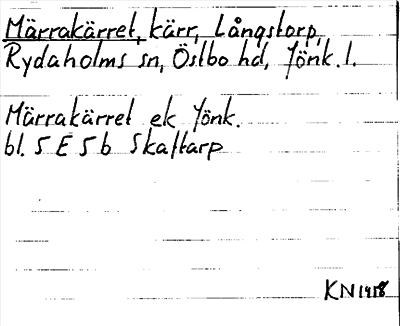 Märrakärret, kärr, Långstorp,
Rydaholms sn, Östbo hd, Jönk. l.
Märrakärret ek Jönk.
bl. 5 E 5 b Skaftarp
KN 1918